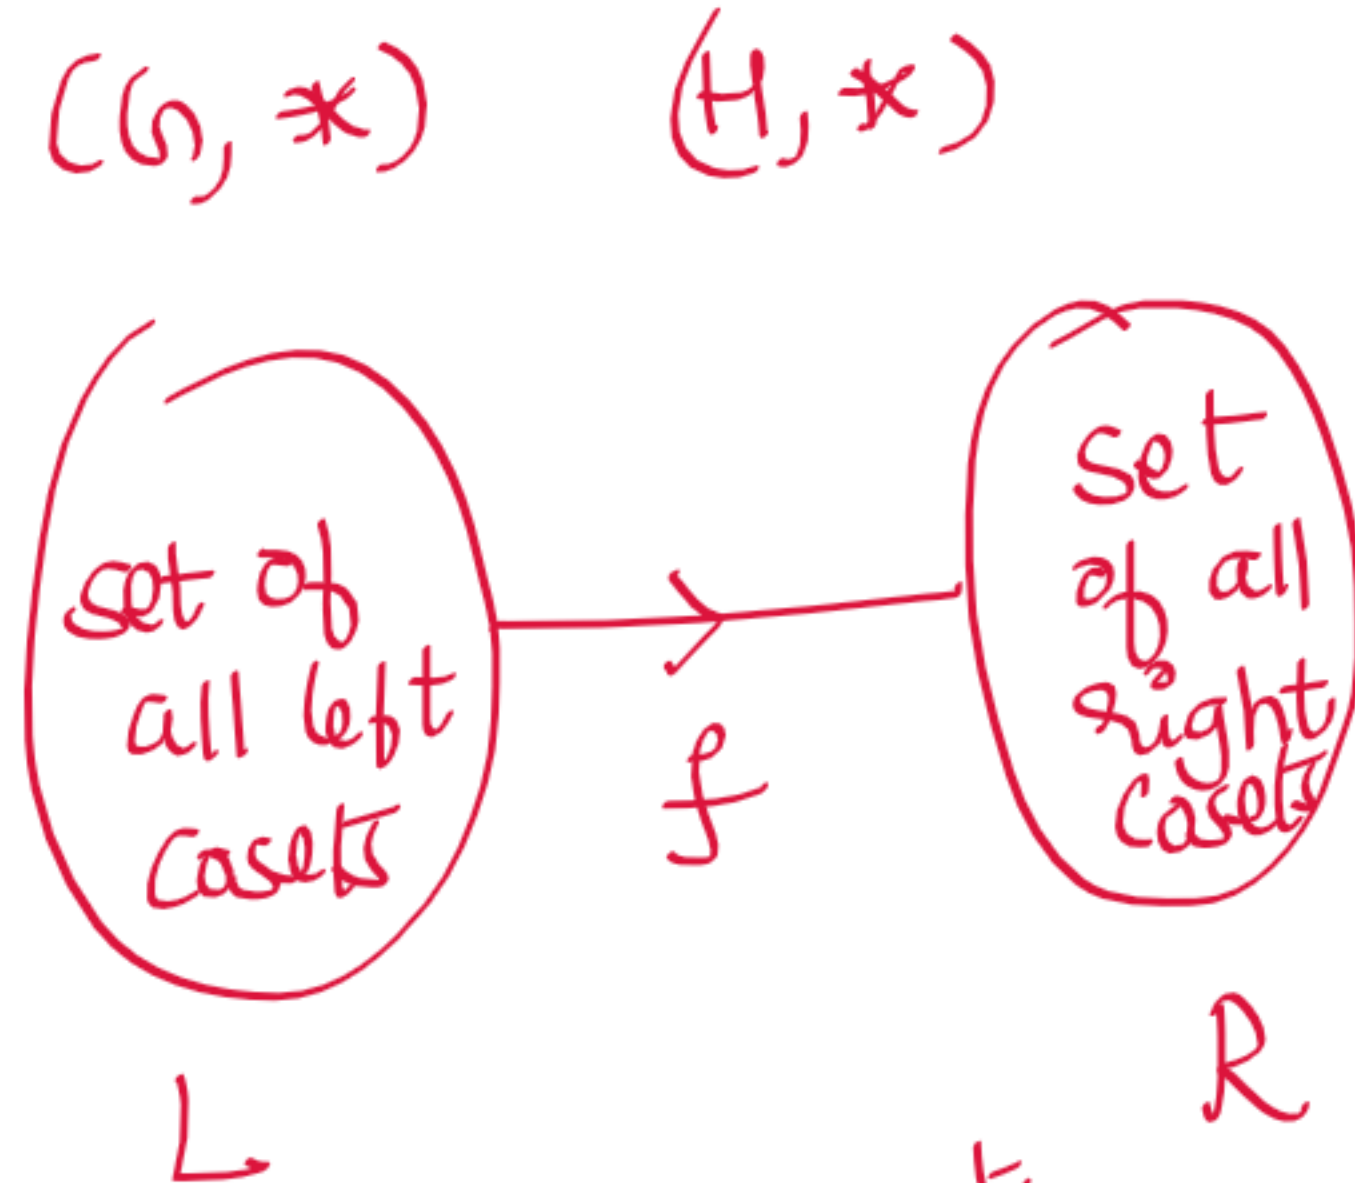 (G, *) (H, *)
set of
all left
Cosets
set
of all
right
Cosets
f
R
L